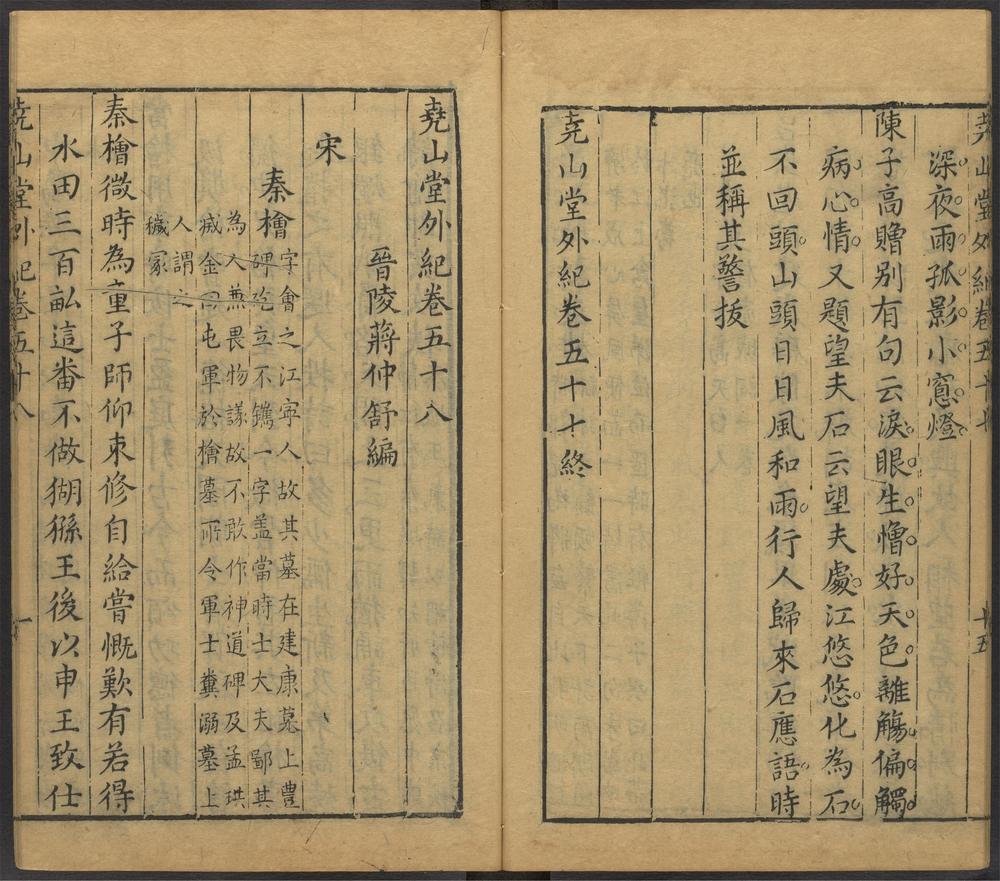 堯山堂外紀卷五十七
十五
深夜雨孤影小窻燈
陳子高贈别有句云淚眼生憎好天色離觴偏觸
病心情又題望夫石云望夫處江悠悠化為石
不回頭山頭日日風和雨行人歸來石應語時
並稱其警拔
堯山堂外紀卷五十七終
堯山堂外紀卷五十八
晉陵蔣仲舒編
宋
秦檜
字會之江寜人故其墓在建康墓上豊
碑屹立不鐫一字盖當時士大夫鄙其
為人兼畏物議故不敢作神道碑及孟珙
滅金回屯軍於檜墓所令軍士糞溺墓上
人謂之
穢冢
秦檜微時為童子師仰束修自給嘗慨歎有若得
水田三百畆這番不做猢猻王後以申王致仕
堯山堂外紀卷五十八
一